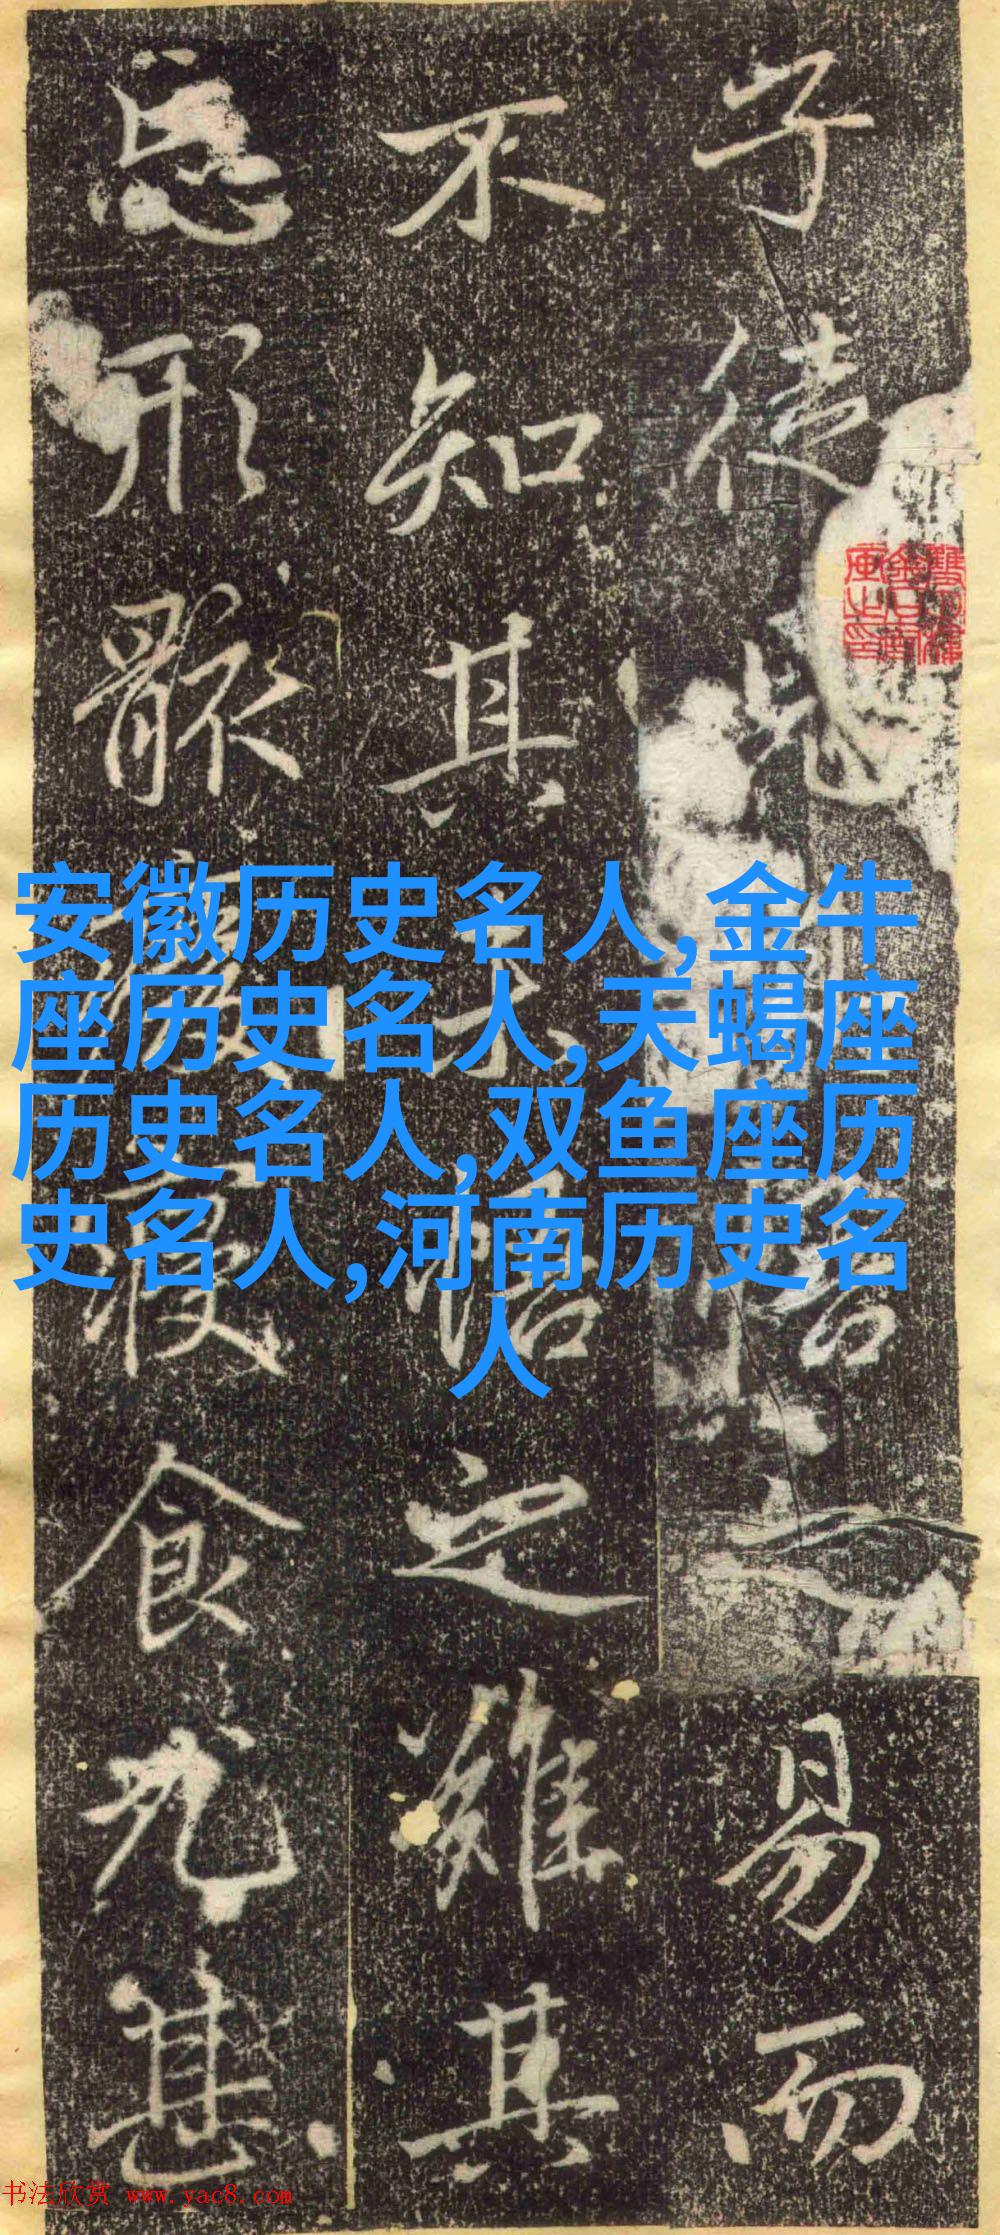 子徒見習之易而
不知其不悟之難其
忘形骸廢寢食尤甚
安徽历史名人,金牛
座历史名人,天蝎座
历史名人,双鱼座历
史名人,河南历史名
人
书法欣赏 www.yac8.com